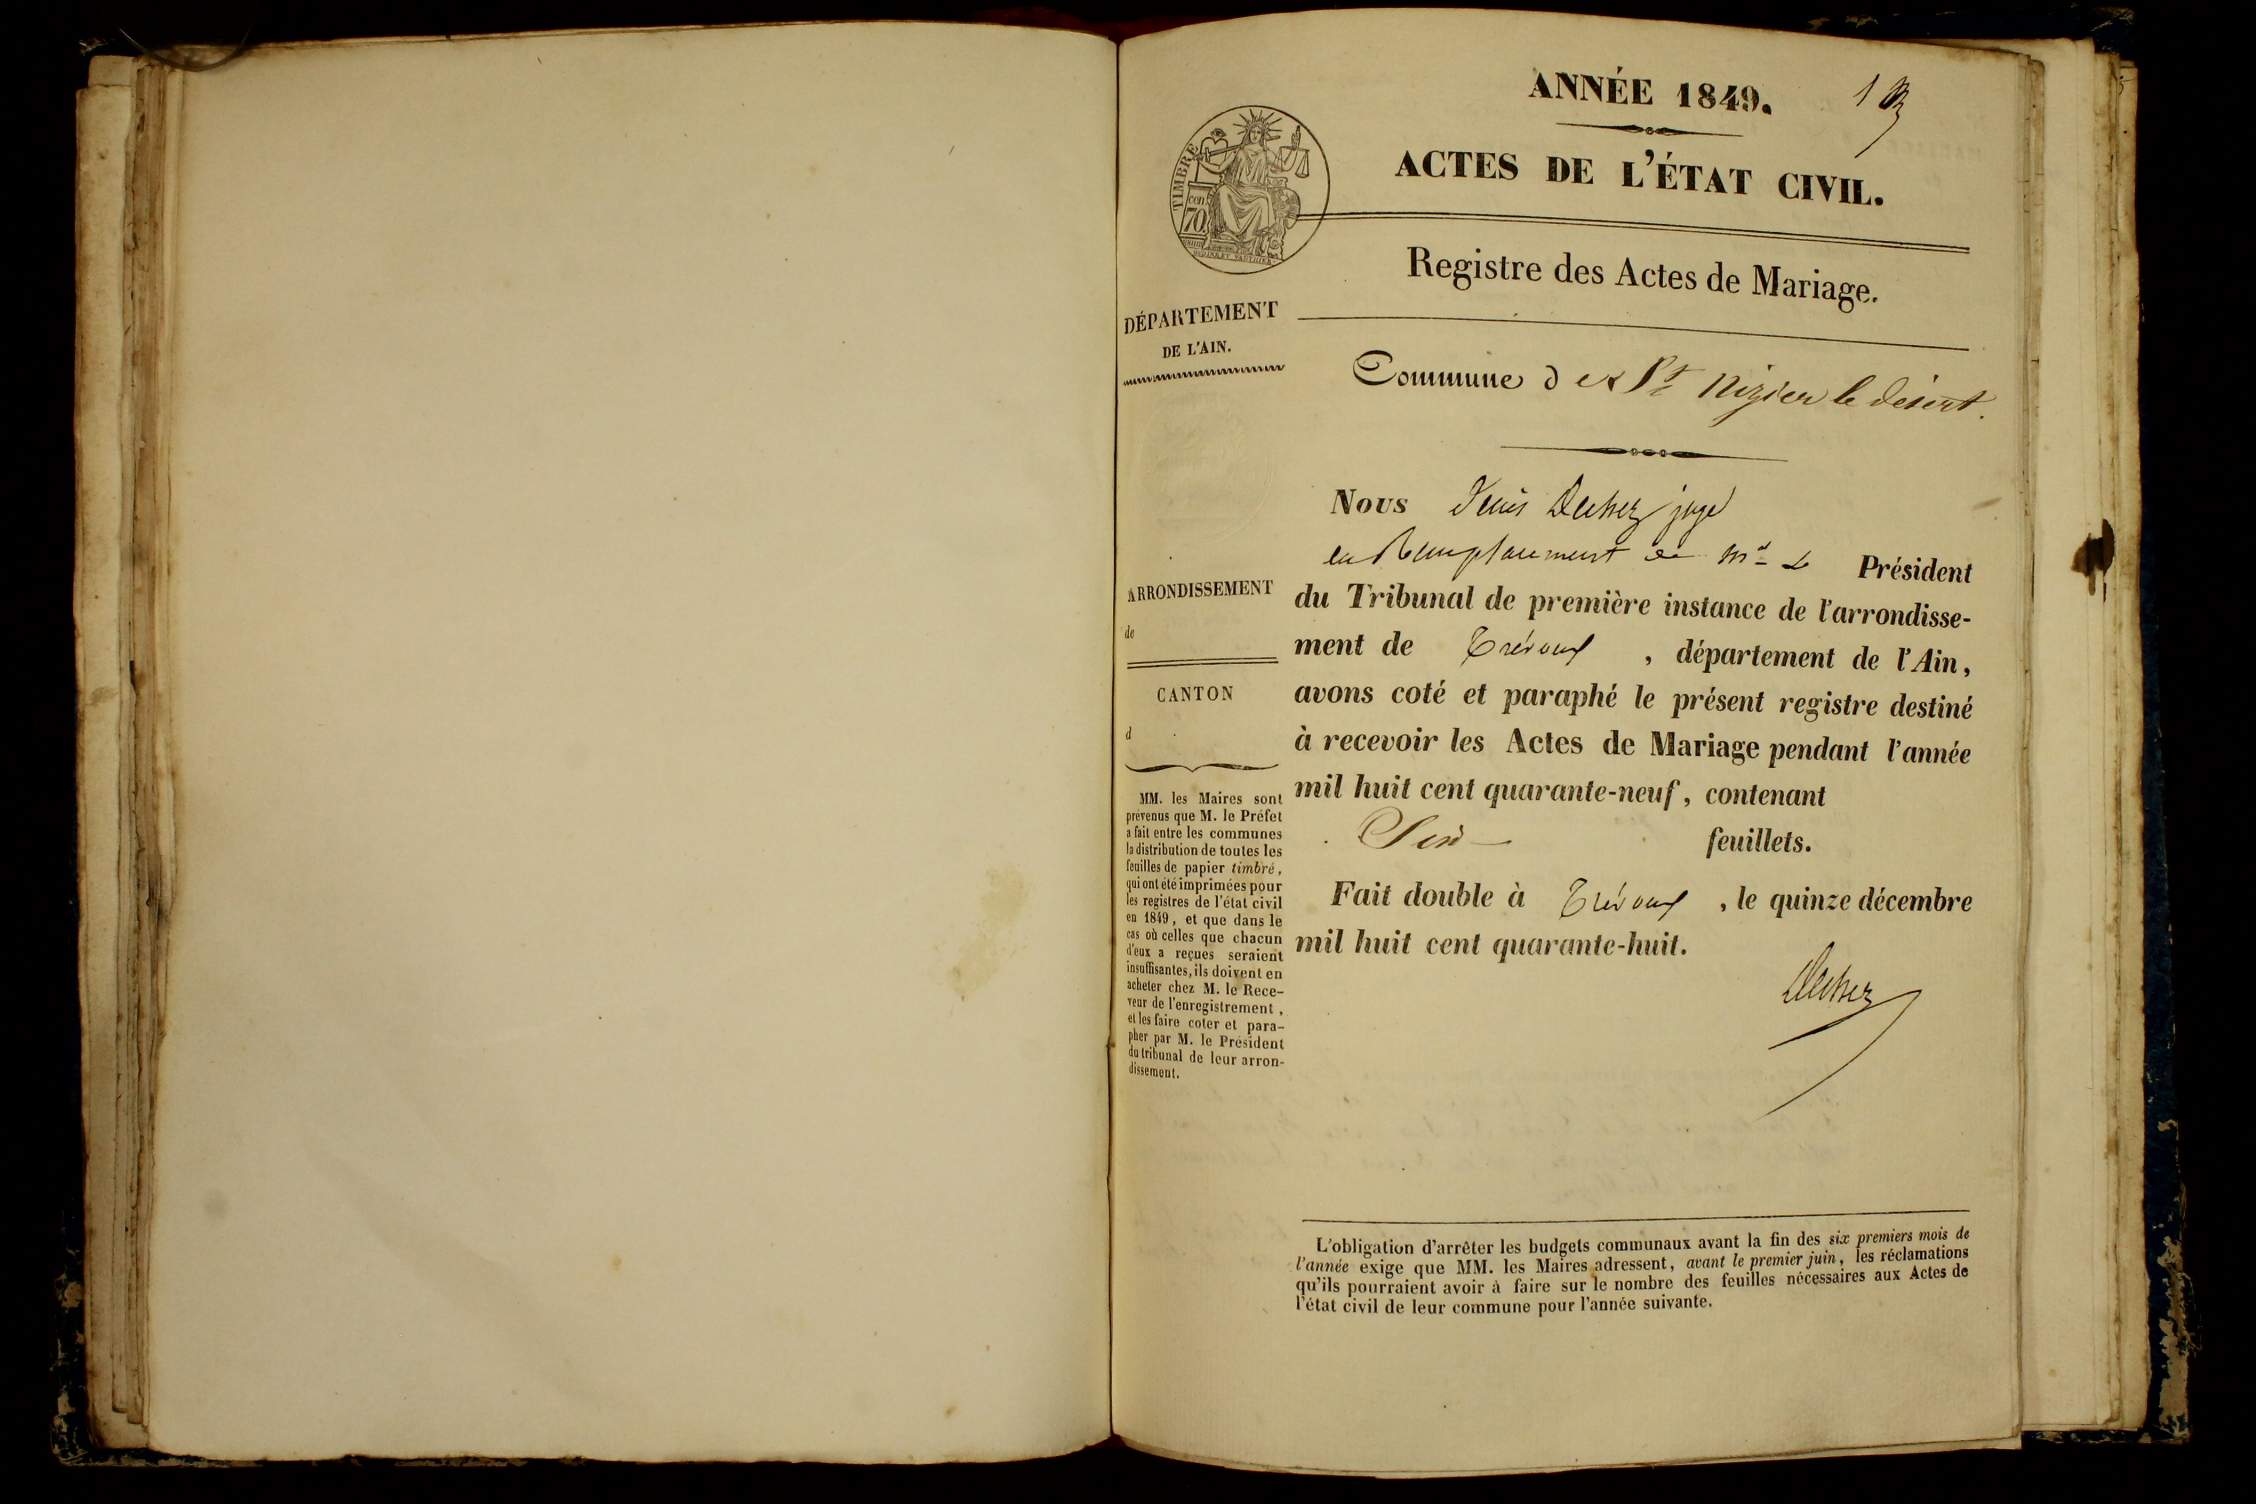 ANNÉE 1849.
1
ACTES DE L'ÉTAT CIVIL.
TIMBRE
70
Registre des Actes de Mariage.
DÉPARTEMENT
DE L'AIN.
Commune de St Nizier le désert.
Nous Denis juge
en Remplacement de Mr le Président
du Tribunal de première instance de l'arrondisse-
ment de Trévoux, département de l'Ain,
avons coté et paraphé le présent registre destiné
à recevoir les Actes de Mariage pendant l'année
mil huit cent quarante-neuf, contenant
feuillets.
Fait double à Trévoux, le quinze décembre
mil huit cent quarante-huit.
ARRONDISSEMENT
de
CANTON
d
MM. les Maires sont
prévenus que M. le Préfet
a fait entre les communes
la distribution de toutes les
feuilles de papier timbré,
qui ont été imprimées pour
les registres de l'état civil
en 1849, et que dans le
cas où celles que chacun
d'eux a reçues seraient
insuffisantes, ils doivent en
acheter chez M. le Rece-
veur de l'enregistrement,
et les faire coter et para-
pher par M. le Président
du tribunal de leur arron-
dissement.
L'obligation d'arrêter les budgets communaux avant la fin des six premiers mois de
l'année exige que MM. les Maires adressent, avant le premier juin, les réclamations
qu'ils pourraient avoir à faire sur le nombre des feuilles nécessaires aux Actes de
l'état civil de leur commune pour l'année suivante.